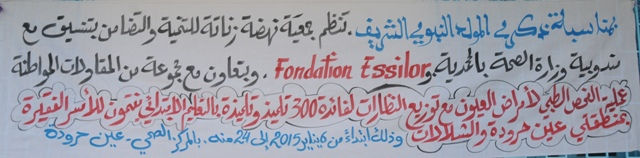 بمناسبة ذكرى المولد النبوي الشريف. تنظم جمعية نهضة زناتة للتنمية والتضامن بتنسيق مع
مندوبية وزارة الصحة بالمحمدية و Fondation Essilor. وبتعاون مع مجموعة من المقاولات المواطنة
عملية الفحص الطبي لأمراض العيون مع توزيع النظارات لفائدة 300 تلميذ وتلميذة بالتعليم الابتدائي ينتمون للأسر الفقيرة
بمنطقتي عين حرودة والشلالات وذلك ابتداء من 6 يناير 2015 إلى 24 منه. بالمركز الصحي. عين حرودة